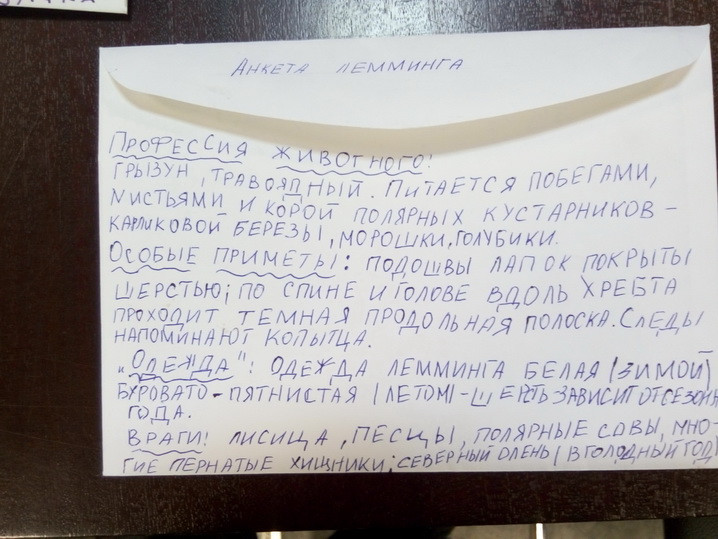 АНКЕТА ЛЕММИНГА
ПРОФЕССИЯ ЖИВОТНОГО:
ГРЫЗУН, ТРАВОЯДНЫЙ. ПИТАЕТСЯ ПОБЕГАМИ,
ЛИСТЬЯМИ И КОРОЙ ПОЛЯРНЫХ КУСТАРНИКОВ -
КАРЛИКОВОЙ БЕРЕЗЫ, МОРОШКИ, ГОЛУБИКИ.
ОСОБЫЕ ПРИМЕТЫ: ПОДОШВЫ ЛАПОК ПОКРЫТЫ
ШЕРСТЬЮ; ПО СПИНЕ И ГОЛОВЕ ВДОЛЬ ХРЕБТА
ПРОХОДИТ ТЕМНАЯ ПРОДОЛЬНАЯ ПОЛОСКА. СЛЕДЫ
НАПОМИНАЮТ КОПЫТЦА.
"ОДЕЖДА": ОДЕЖДА ЛЕММИНГА БЕЛАЯ (ЗИМОЙ)
БУРОВАТО - ПЯТНИСТАЯ (ЛЕТОМ) - ШЕРСТЬ ЗАВИСИТ ОТ СЕЗОНА
ГОДА.
ВРАГИ: ЛИСИЦА, ПЕСЦЫ, ПОЛЯРНЫЕ СОВЫ, МНО-
ГИЕ ПЕРНАТЫЕ ХИЩНИКИ; СЕВЕРНЫЙ ОЛЕНЬ (В ГОЛОДНЫЙ ГОД)